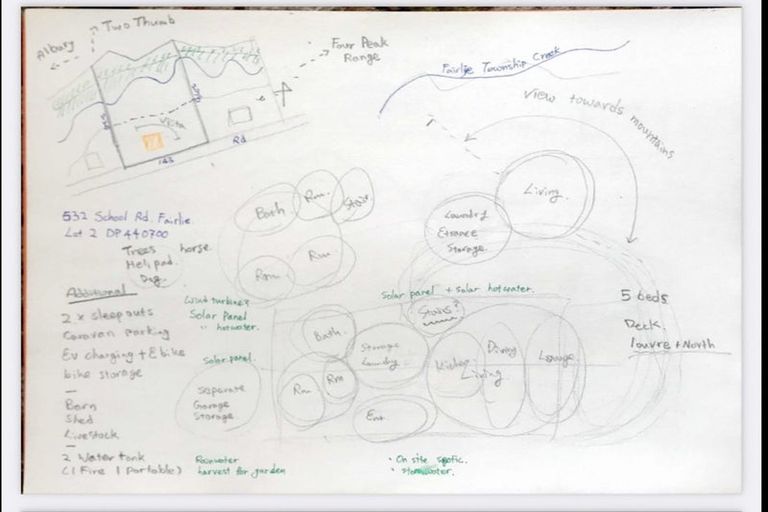 Two Thumb
Albury
Four Peak
Range
Fairlie Township Creek
View towards mountains
view
Rd
143
Living
Laundry
Entrance
Storage
Bath
Rm
Stair
Rm
Rm
532 School Rd. Fairlie.
Lot 2 DP 440700
Trees horse
Heli pad.
Dog
Additional
2 x sleepouts
Caravan parking
EV charging + E bike
bike storage
Barn
Shed
Livestock
2 Water tank
(1 Fire 1 Portable)
Wind turbines
Solar Panel
" hotwater.
Solar panel.
Separate
Garage
Storage
Rainwater
harvest for garden
Solar panel + solar hotwater.
Stairs?
Bath
Storage
Laundry
Rm
Rm
Ent.
Kitchen
Dining
Living
Lounge
5 beds
Deck.
louvre + North
• On site septic.
• stormwater.